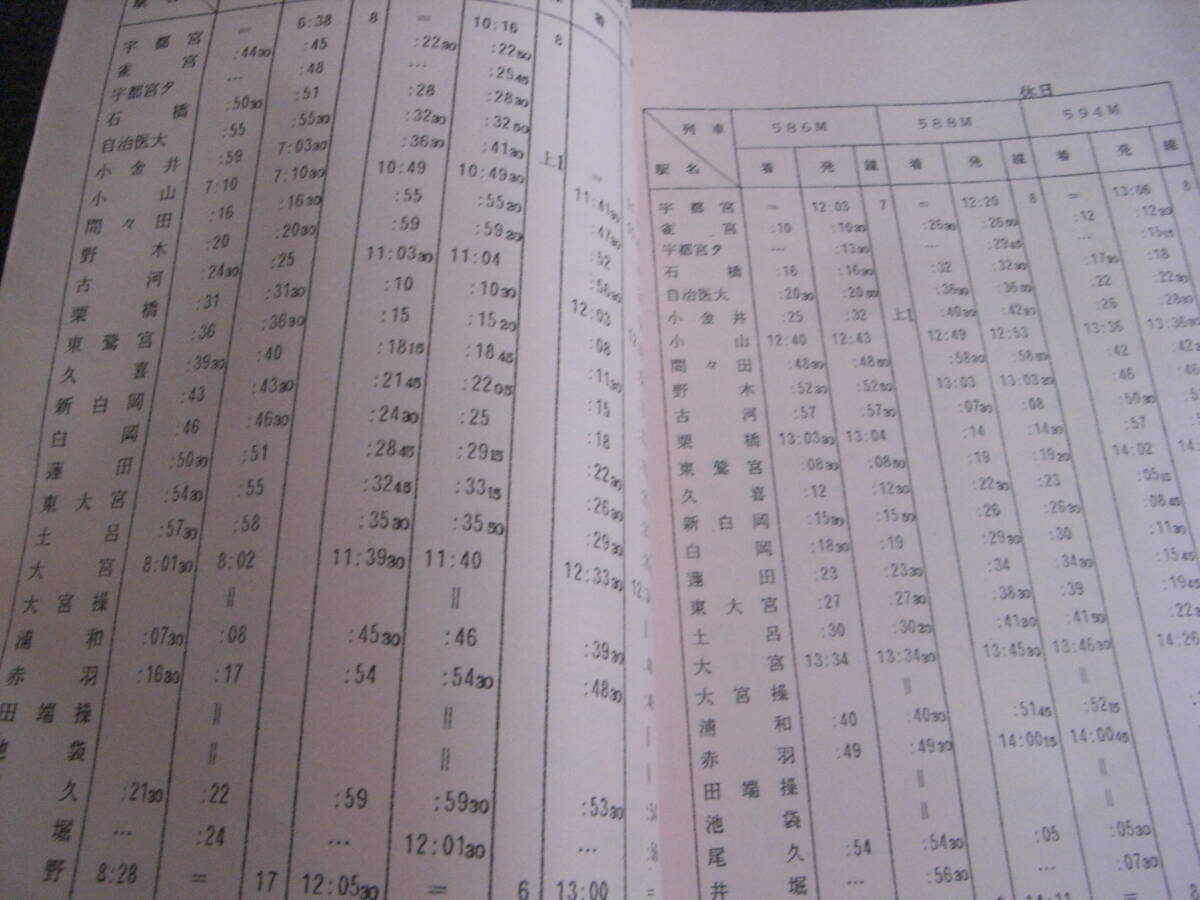 駅 名
宇 都 宮 = 6:38 8 = 10:16 8
雀 宮 :44₃₀ :45 :22₃₀ :22₅₀
宇都宮タ … :48 … :25₄₅
石 橋 :50₃₀ :51 :28 :28₃₀
自治医大 :55 :55₃₀ :32₃₀ :32₅₀
小 金 井 :59 7:03₃₀ :36₃₀ :41₃₀ 上1
小 山 7:10 7:10₃₀ 10:49 10:49₃₀ =
間 々 田 :16 :16₃₀ :55 :55₂₀ 11:41₃₀
野 木 :20 :20₃₀ :59 :59₂₀ :47₃₀
古 河 :24₃₀ :25 11:03₃₀ 11:04 :52
栗 橋 :31 :31₃₀ :10 :10₃₀ :56₃₀
東 鷲 宮 :36 :36₃₀ :15 :15₂₀ 12:03
久 喜 :39₃₀ :40 :18₁₅ :18₄₅ :08
新 白 岡 :43 :43₃₀ :21₄₅ :22₀₅ :11₃₀
白 岡 :46 :46₃₀ :24₃₀ :25 :15
蓮 田 :50₃₀ :51 :28₄₅ :29₁₅ :18
東 大 宮 :54₃₀ :55 :32₄₅ :33₁₅ :22₃₀
土 呂 :57₃₀ :58 :35₃₀ :35₅₀ :26₃₀
大 宮 8:01₃₀ 8:02 11:39₃₀ 11:40 :29₃₀
大 宮 操 || || 12:33₃₀
浦 和 :07₃₀ :08 :45₃₀ :46
赤 羽 :16₃₀ :17 :54 :54₃₀ :39₃₀
田 端 操 || || :48₃₀
袋 || ||
久 :21₃₀ :22 :59 :59₃₀ :53₃₀
堀 … :24 … 12:01₃₀ …
野 8:28 = 17 12:05₃₀ = 6 13:00 =
休日
列 車 586M 588M 594M
駅 名 着 発 線 着 発 線 着 発 線
宇 都 宮 = 12:03 7 = 12:20 8 = 13:06 8
雀 宮 :10 :10₃₀ :26₃₀ :26₅₀ :12 :12₃₀
宇都宮タ … :13₃₀ … :29₄₅ … :15₁₅
石 橋 :16 :16₃₀ :32 :32₃₀ :17₃₀ :18
自治医大 :20₃₀ :20₅₀ :36₃₀ :36₅₀ :22 :22₃₀
小 金 井 :25 :32 上1 :40₃₀ :42₃₀ :26 :28₃₀
小 山 12:40 12:43 12:49 12:53 13:36 13:36₃₀
間 々 田 :48₃₀ :48₅₀ :58₃₀ :58₅₀ :42
野 木 :52₃₀ :52₅₀ 13:03 13:03₂₀ :46 :46
古 河 :57 :57₃₀ :07₃₀ :08 :50₃₀
栗 橋 13:03₃₀ 13:04 :14 :14₃₀ :57
東 鷲 宮 :08₃₀ :08₅₀ :19 :19₂₀ 14:02
久 喜 :12 :12₃₀ :22₃₀ :23 :05₁₅
新 白 岡 :15₃₀ :15₅₀ :26 :26₃₀ :08₄₅
白 岡 :18₃₀ :19 :29₃₀ :30 :11₃₀
蓮 田 :23 :23₃₀ :34 :34₃₀ :15₄₅
東 大 宮 :27 :27₃₀ :38₃₀ :39 :19₄₅
土 呂 :30 :30₂₀ :41₃₀ :41₅₀
大 宮 13:34 13:34₃₀ 13:45₃₀ 13:46₃₀ 14:26
大 宮 操 || ||
浦 和 :40 :40₃₀ :51₄₅ :52₁₅
赤 羽 :49 :49₃₀ 14:00₁₅ 14:00₄₅
田 端 操 || ||
池 袋 || ||
尾 久 :54 :54₃₀ :05 :05₃₀
井 堀 … :56₃₀ … :07₃₀